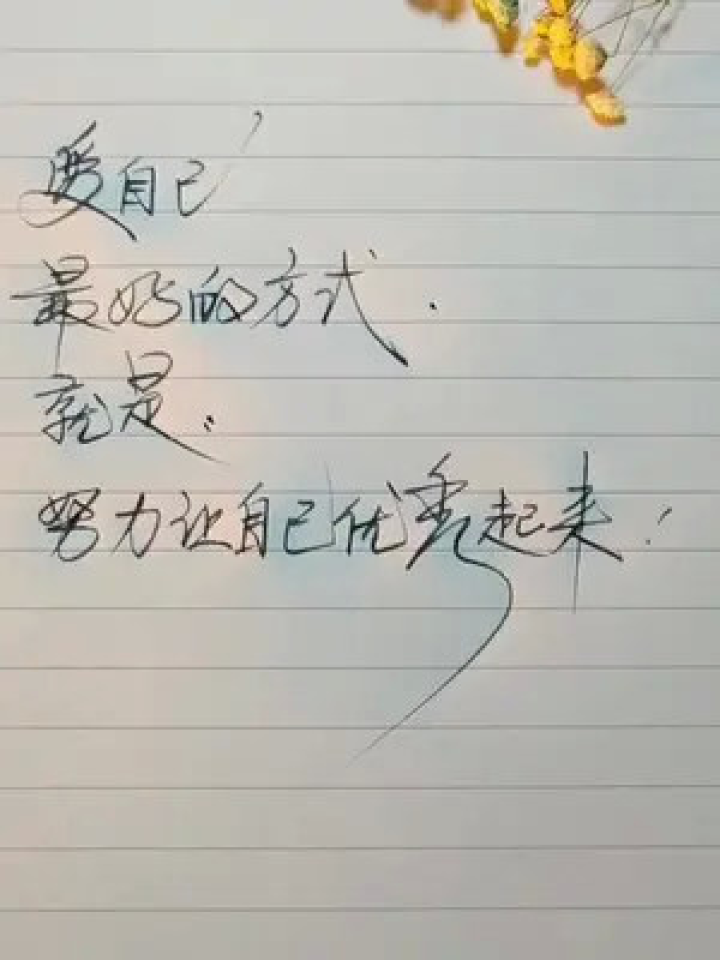 爱自己
最好的方式.
就是:
努力让自己优秀起来!